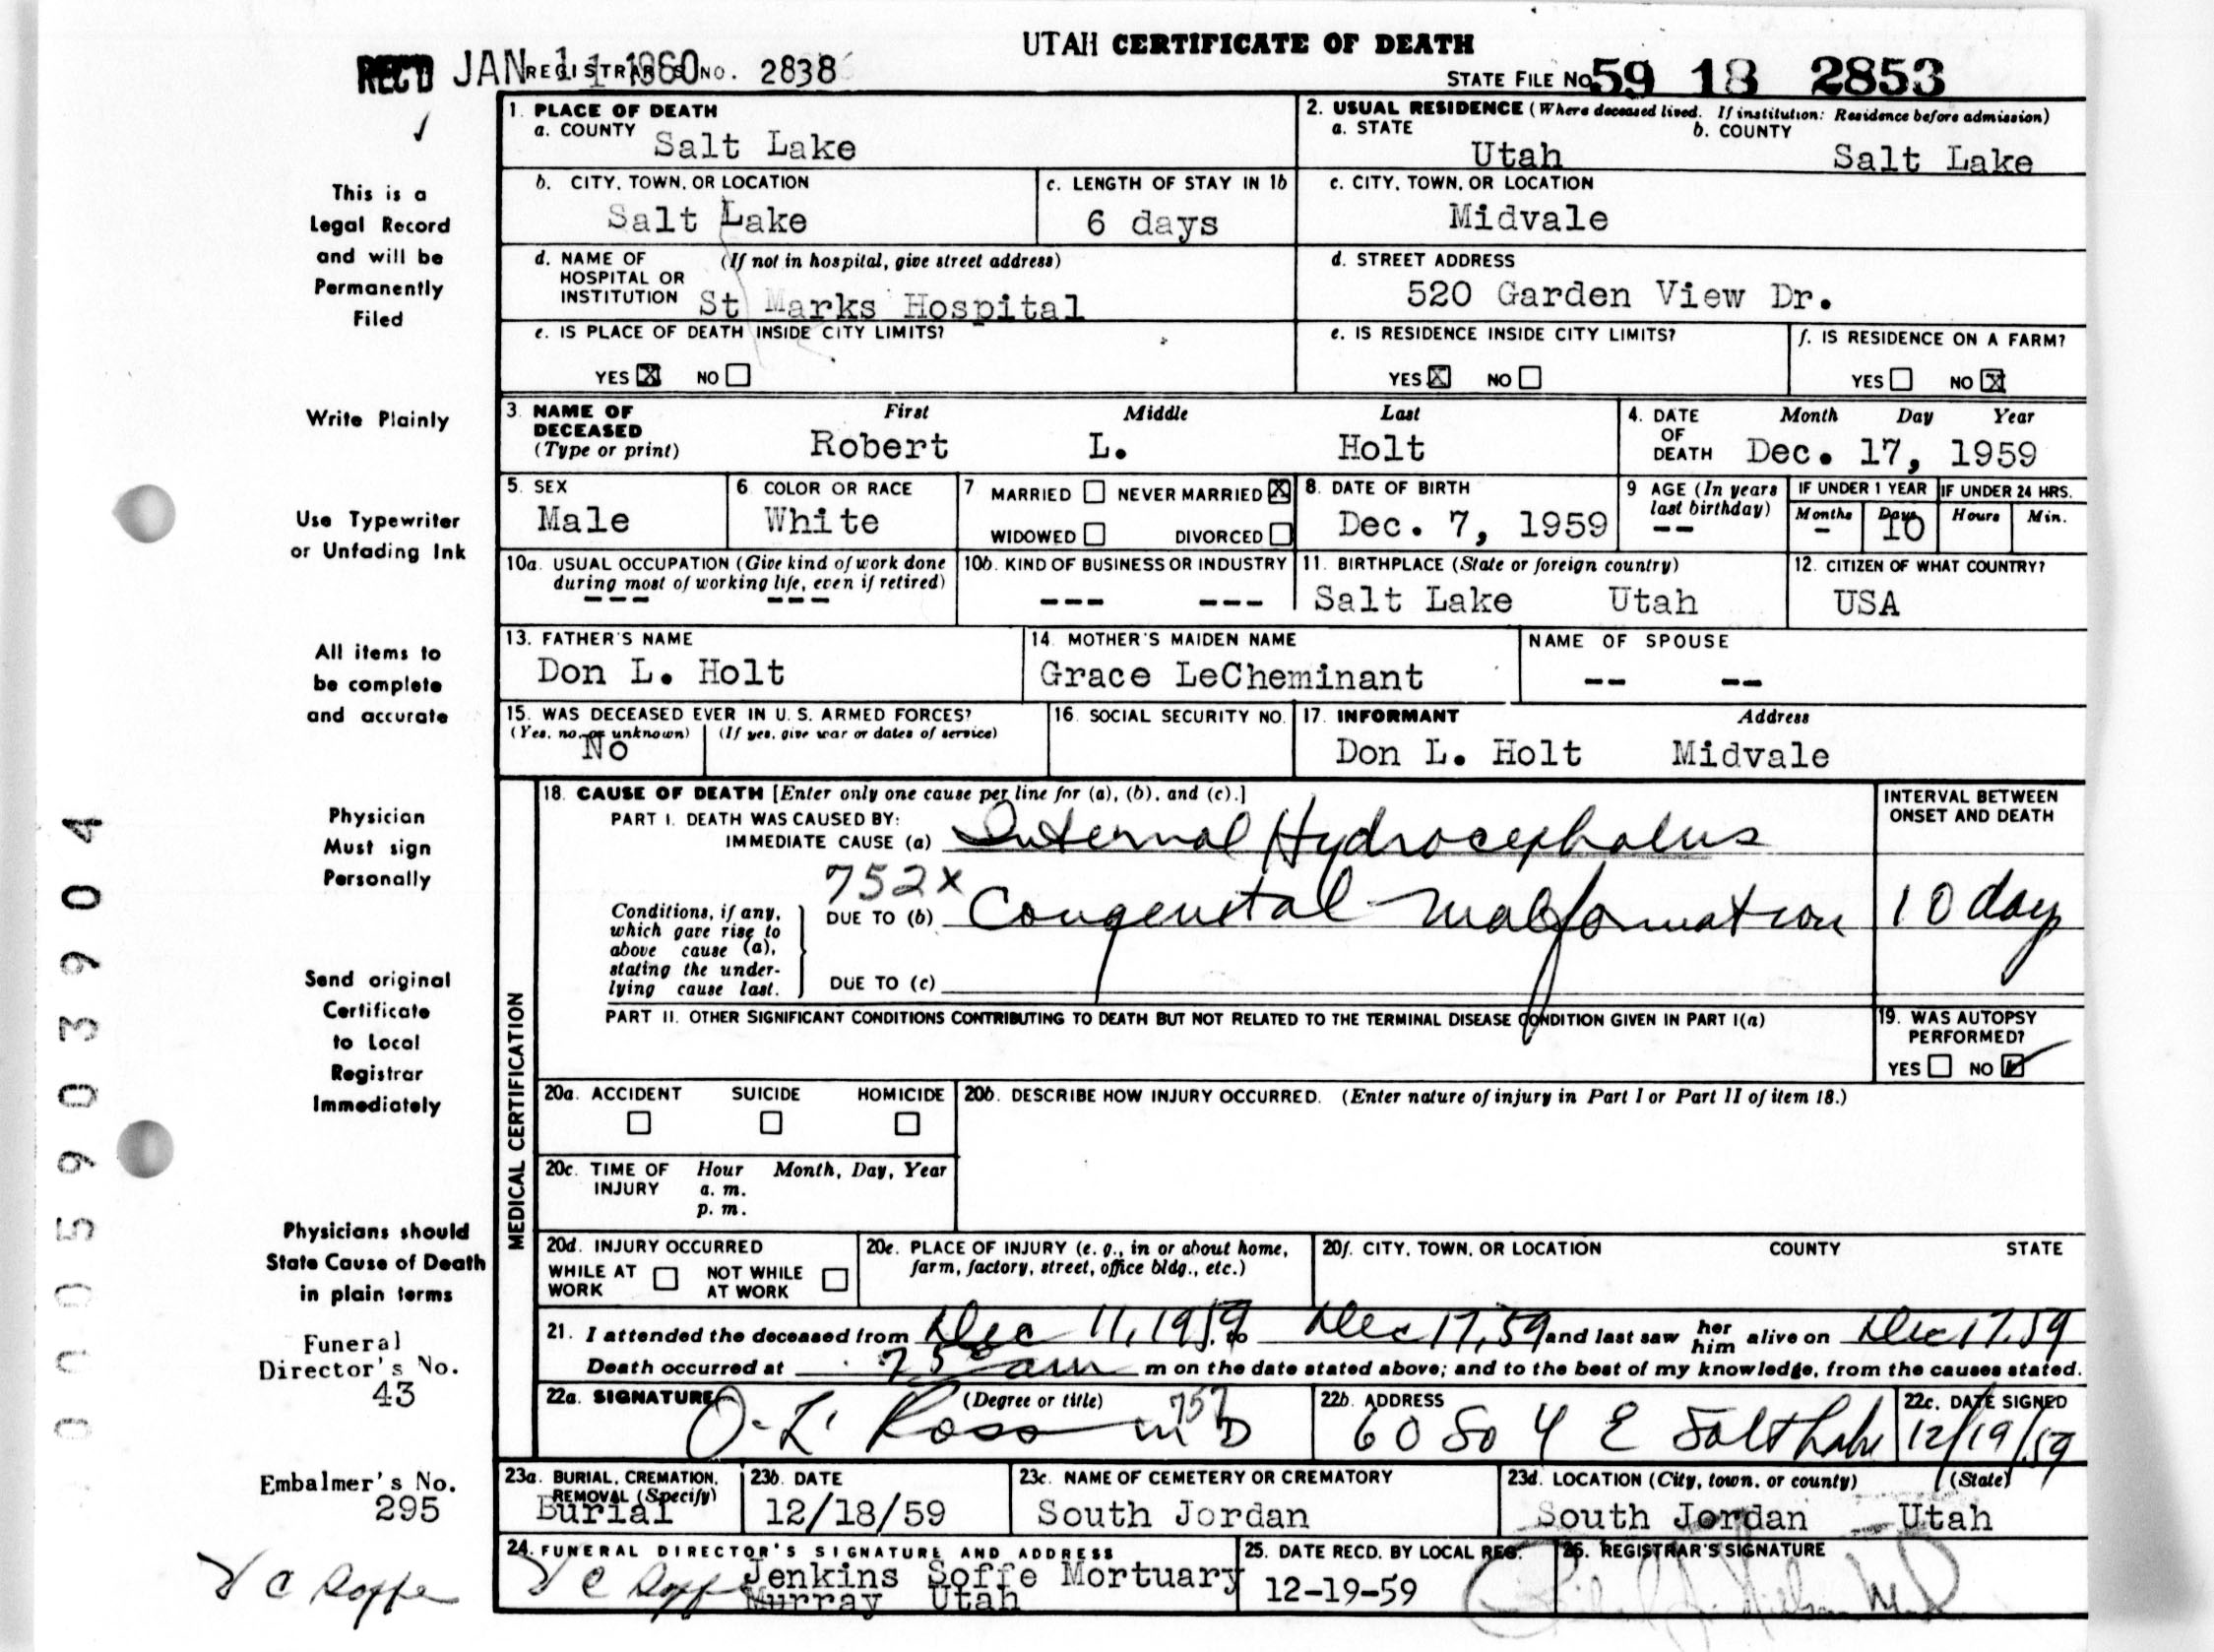 UTAH CERTIFICATE OF DEATH
REC'D JAN 11 1960 REGISTRAR'S NO. 2838
STATE FILE NO. 59 18 2853
1. PLACE OF DEATH
a. COUNTY Salt Lake
2. USUAL RESIDENCE (Where deceased lived. If institution: Residence before admission)
a. STATE Utah b. COUNTY Salt Lake
b. CITY, TOWN, OR LOCATION Salt Lake
c. LENGTH OF STAY IN 1b 6 days
c. CITY, TOWN, OR LOCATION Midvale
d. NAME OF HOSPITAL OR INSTITUTION (If not in hospital, give street address) St Marks Hospital
d. STREET ADDRESS 520 Garden View Dr.
e. IS PLACE OF DEATH INSIDE CITY LIMITS? YES X NO
e. IS RESIDENCE INSIDE CITY LIMITS? YES X NO
f. IS RESIDENCE ON A FARM? YES NO X
3. NAME OF DECEASED (Type or print) First Middle Last
Robert L. Holt
4. DATE OF DEATH Month Day Year
Dec. 17, 1959
5. SEX Male
6. COLOR OR RACE White
7 MARRIED NEVER MARRIED X WIDOWED DIVORCED
8. DATE OF BIRTH Dec. 7, 1959
9 AGE (In years last birthday) --
IF UNDER 1 YEAR Months - Days 10
IF UNDER 24 HRS. Hours Min.
10a. USUAL OCCUPATION (Give kind of work done during most of working life, even if retired) --- ---
10b. KIND OF BUSINESS OR INDUSTRY --- ---
11. BIRTHPLACE (State or foreign country) Salt Lake Utah
12. CITIZEN OF WHAT COUNTRY? USA
13. FATHER'S NAME Don L. Holt
14. MOTHER'S MAIDEN NAME Grace LeCheminant
NAME OF SPOUSE -- --
15. WAS DECEASED EVER IN U. S. ARMED FORCES?
(Yes, no, or unknown) No (If yes, give war or dates of service)
16. SOCIAL SECURITY NO.
17. INFORMANT Address
Don L. Holt Midvale
MEDICAL CERTIFICATION
18. CAUSE OF DEATH [Enter only one cause per line for (a), (b), and (c).]
PART I. DEATH WAS CAUSED BY:
IMMEDIATE CAUSE (a) Internal Hydrocephalus
752x
Conditions, if any, which gave rise to above cause (a), stating the underlying cause last.
DUE TO (b) Congenital Malformation
DUE TO (c)
INTERVAL BETWEEN ONSET AND DEATH
10 days
PART II. OTHER SIGNIFICANT CONDITIONS CONTRIBUTING TO DEATH BUT NOT RELATED TO THE TERMINAL DISEASE CONDITION GIVEN IN PART I(a)
19. WAS AUTOPSY PERFORMED? YES NO ✓
20a. ACCIDENT SUICIDE HOMICIDE
20b. DESCRIBE HOW INJURY OCCURRED. (Enter nature of injury in Part I or Part II of item 18.)
20c. TIME OF INJURY Hour a. m. p. m. Month, Day, Year
20d. INJURY OCCURRED WHILE AT WORK NOT WHILE AT WORK
20e. PLACE OF INJURY (e. g., in or about home, farm, factory, street, office bldg., etc.)
20f. CITY, TOWN, OR LOCATION COUNTY STATE
21. I attended the deceased from Dec 11, 1959, to Dec 17, 59 and last saw her him alive on Dec 17, 59
Death occurred at 7 50 am m on the date stated above; and to the best of my knowledge, from the causes stated.
22a. SIGNATURE (Degree or title) O. L. Ross MD 757
22b. ADDRESS 60 So 4 E Salt Lake
22c. DATE SIGNED 12/19/59
23a. BURIAL, CREMATION, REMOVAL (Specify) Burial
23b. DATE 12/18/59
23c. NAME OF CEMETERY OR CREMATORY South Jordan
23d. LOCATION (City, town, or county) (State) South Jordan Utah
24. FUNERAL DIRECTOR'S SIGNATURE AND ADDRESS
Jenkins Soffe Mortuary
Murray Utah
25. DATE RECD. BY LOCAL REG. 12-19-59
26. REGISTRAR'S SIGNATURE
This is a
Legal Record
and will be
Permanently
Filed
Write Plainly
Use Typewriter
or Unfading Ink
All items to
be complete
and accurate
Physician
Must sign
Personally
Send original
Certificate
to Local
Registrar
Immediately
Physicians should
State Cause of Death
in plain terms
Funeral
Director's No.
43
Embalmer's No.
295
0005903904